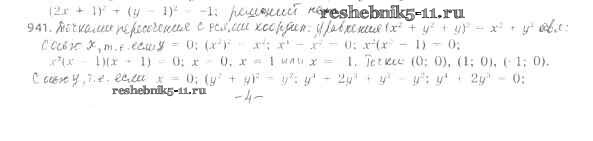 (2x + 1)² + (y − 1)² = −1; решений нет.
reshebnik5-11.ru
941. Точками пересечения с осями координ. уравнения (x² + y² + y)² = x² + y² явл.:
С осью x, т.е. если y = 0; (x²)² = x²; x⁴ − x² = 0; x²(x² − 1) = 0;
x²(x − 1)(x + 1) = 0; x = 0, x = 1 или x = −1. Точки (0; 0), (1; 0), (−1; 0).
С осью y, т.е. если x = 0; (y² + y)² = y²; y⁴ + 2y³ + y² = y²; y⁴ + 2y³ = 0;
reshebnik5-11.ru
−4−